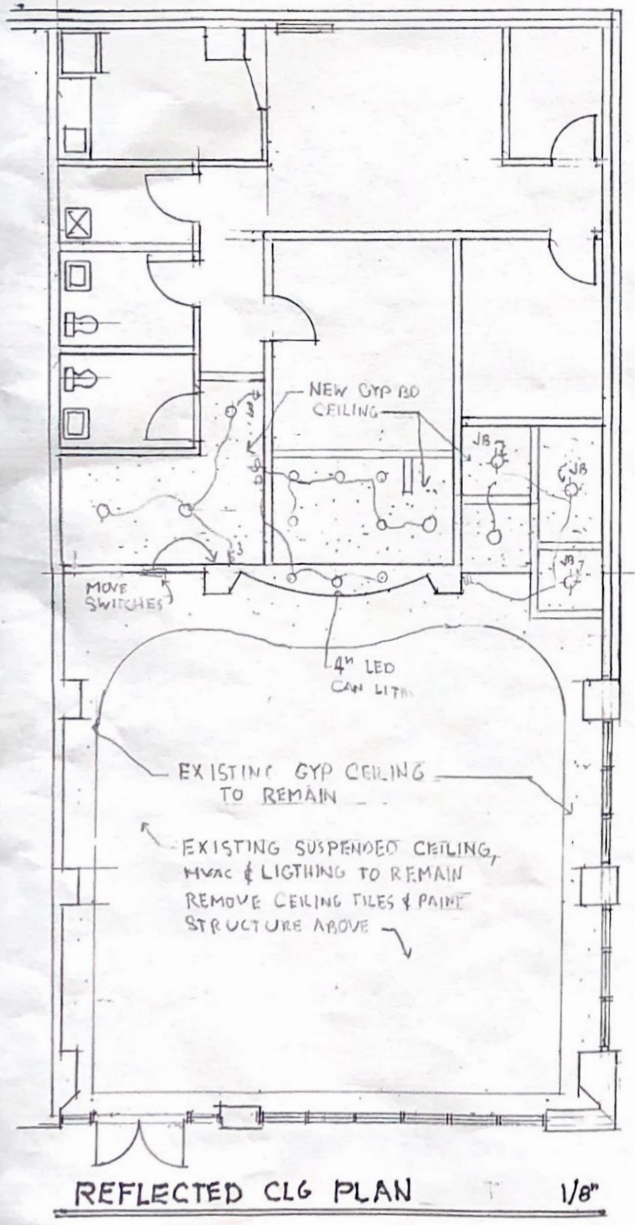 NEW GYP BD
CEILING
JB
JB
JB
3
MOVE
SWITCHES
4" LED
CAN LITE
EXISTING GYP CEILING
TO REMAIN
EXISTING SUSPENDED CEILING,
HVAC & LIGTHING TO REMAIN
REMOVE CEILING TILES & PAINT
STRUCTURE ABOVE
REFLECTED CLG PLAN 1/8"